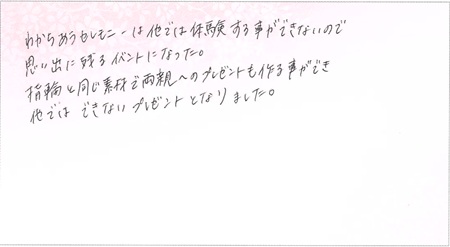 わかちあうセレモニーは他では体験する事ができないので
思い出に残るイベントになった。
指輪と同じ素材で両親へのプレゼントも作る事ができ
他ではできないプレゼントとなりました。